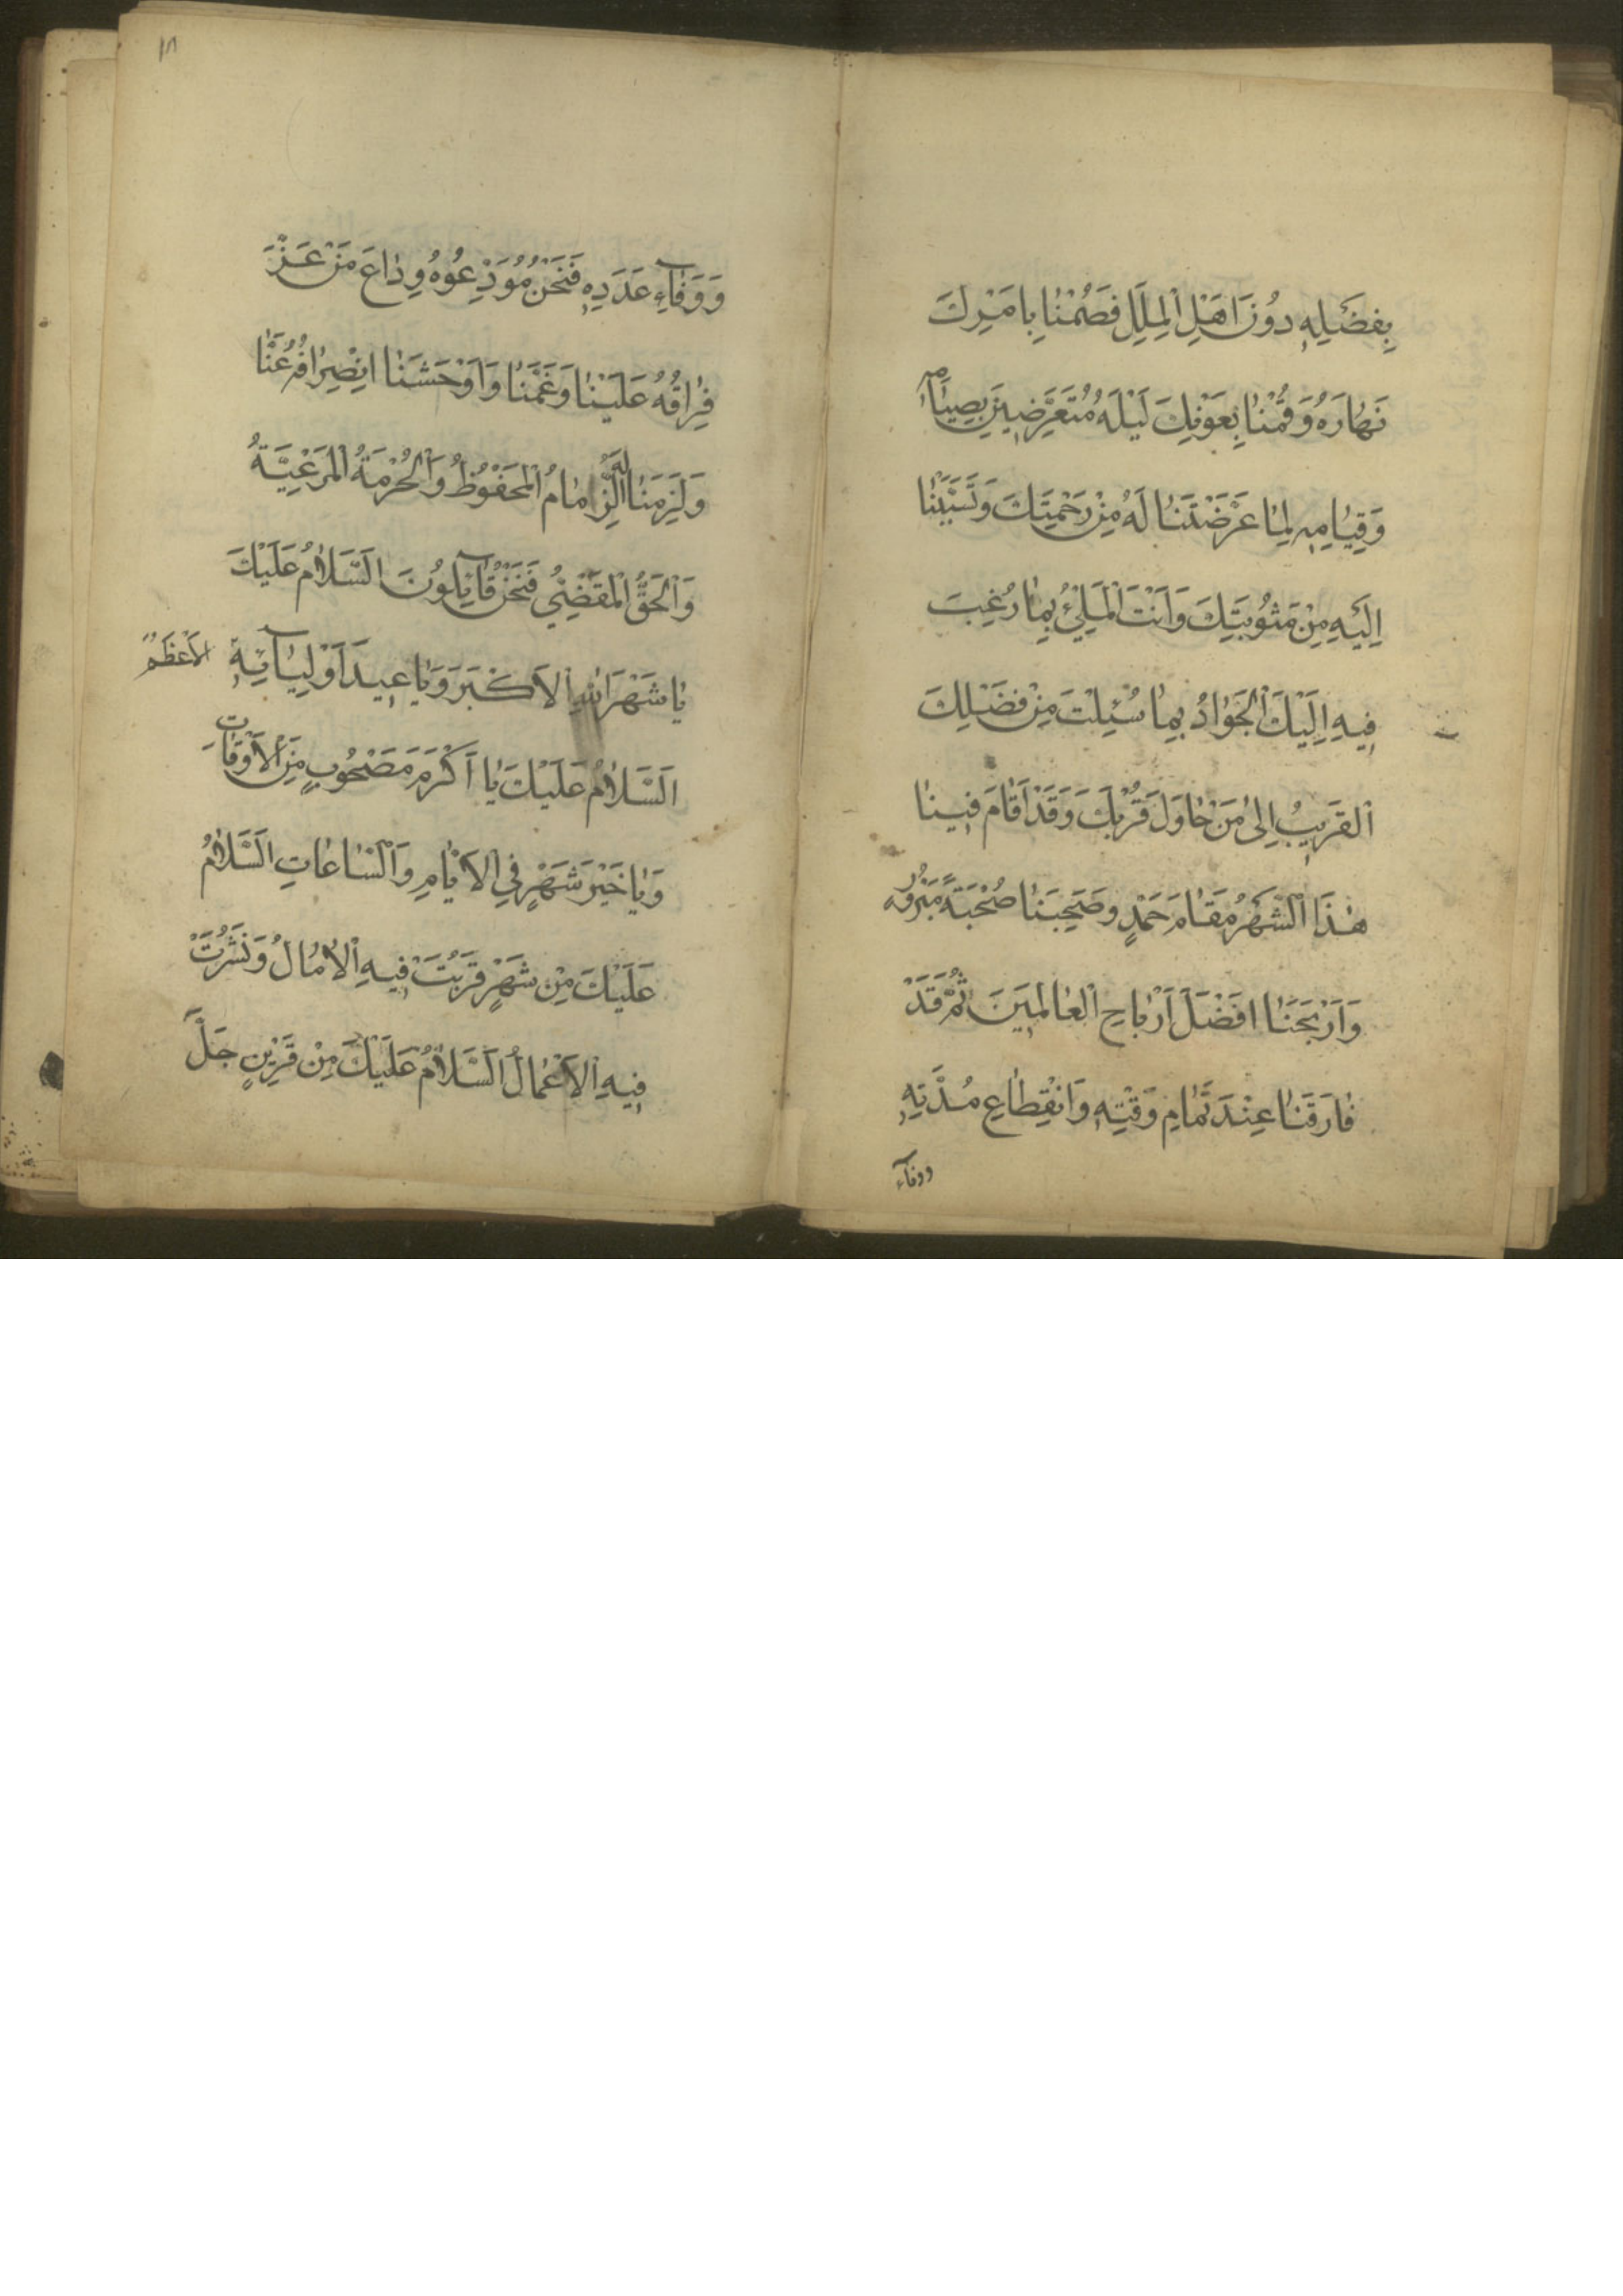 بِفَضْلِهِ دُونَ اَهْلِ الْمِلَلِ فَصُمْنَا بِاَمْرِكَ
نَهَارَهُ وَقُمْنَا بِعَوْنِكَ لَيْلَهُ مُتَعَرِّضِينَ بِصِيَامِهِ
وَقِيَامِهِ لِمَا عَرَّضْتَنَا لَهُ مِنْ رَحْمَتِكَ وَتَسَبَّبْنَا
اِلَيْهِ مِنْ مَثُوبَتِكَ وَاَنْتَ الْمَلِيْءُ بِمَا رُغِبَ
فِيهِ اِلَيْكَ الْجَوَادُ بِمَا سُئِلْتَ مِنْ فَضْلِكَ
الْقَرِيبُ اِلَى مَنْ حَاوَلَ قُرْبَكَ وَقَدْ اَقَامَ فِينَا
هٰذَا الشَّهْرُ مَقَامَ حَمْدٍ وَصَحِبَنَا صُحْبَةَ مَبْرُورٍ
وَاَرْبَحَنَا اَفْضَلَ اَرْبَاحِ الْعَالَمِينَ ثُمَّ قَدْ
فَارَقَنَا عِنْدَ تَمَامِ وَقْتِهِ وَانْقِطَاعِ مُدَّتِهِ
ووفآء
١٨
وَوَفَآءِ عَدَدِهِ فَنَحْنُ مُوَدِّعُوهُ وِدَاعَ مَنْ عَزَّ
فِرَاقُهُ عَلَيْنَا وَغَمَّنَا وَاَوْحَشَنَا انْصِرَافُهُ عَنَّا
وَلَزِمَنَا لَهُ الذِّمَامُ الْمَحْفُوظُ وَالْحُرْمَةُ الْمَرْعِيَّةُ
وَالْحَقُّ الْمَقْضِيُّ فَنَحْنُ قَآئِلُونَ اَلسَّلَامُ عَلَيْكَ
يَا شَهْرَ اللّٰهِ الْاَكْبَرَ وَيَا عِيدَ اَوْلِيَآئِهِ الْاَعْظَمَ
اَلسَّلَامُ عَلَيْكَ يَا اَكْرَمَ مَصْحُوبٍ مِنَ الْاَوْقَاتِ
وَيَا خَيْرَ شَهْرٍ فِي الْاَيَّامِ وَالسَّاعَاتِ اَلسَّلَامُ
عَلَيْكَ مِنْ شَهْرٍ قَرُبَتْ فِيهِ الْاٰمَالُ وَنُشِرَتْ
فِيهِ الْاَعْمَالُ اَلسَّلَامُ عَلَيْكَ مِنْ قَرِينٍ جَلَّ